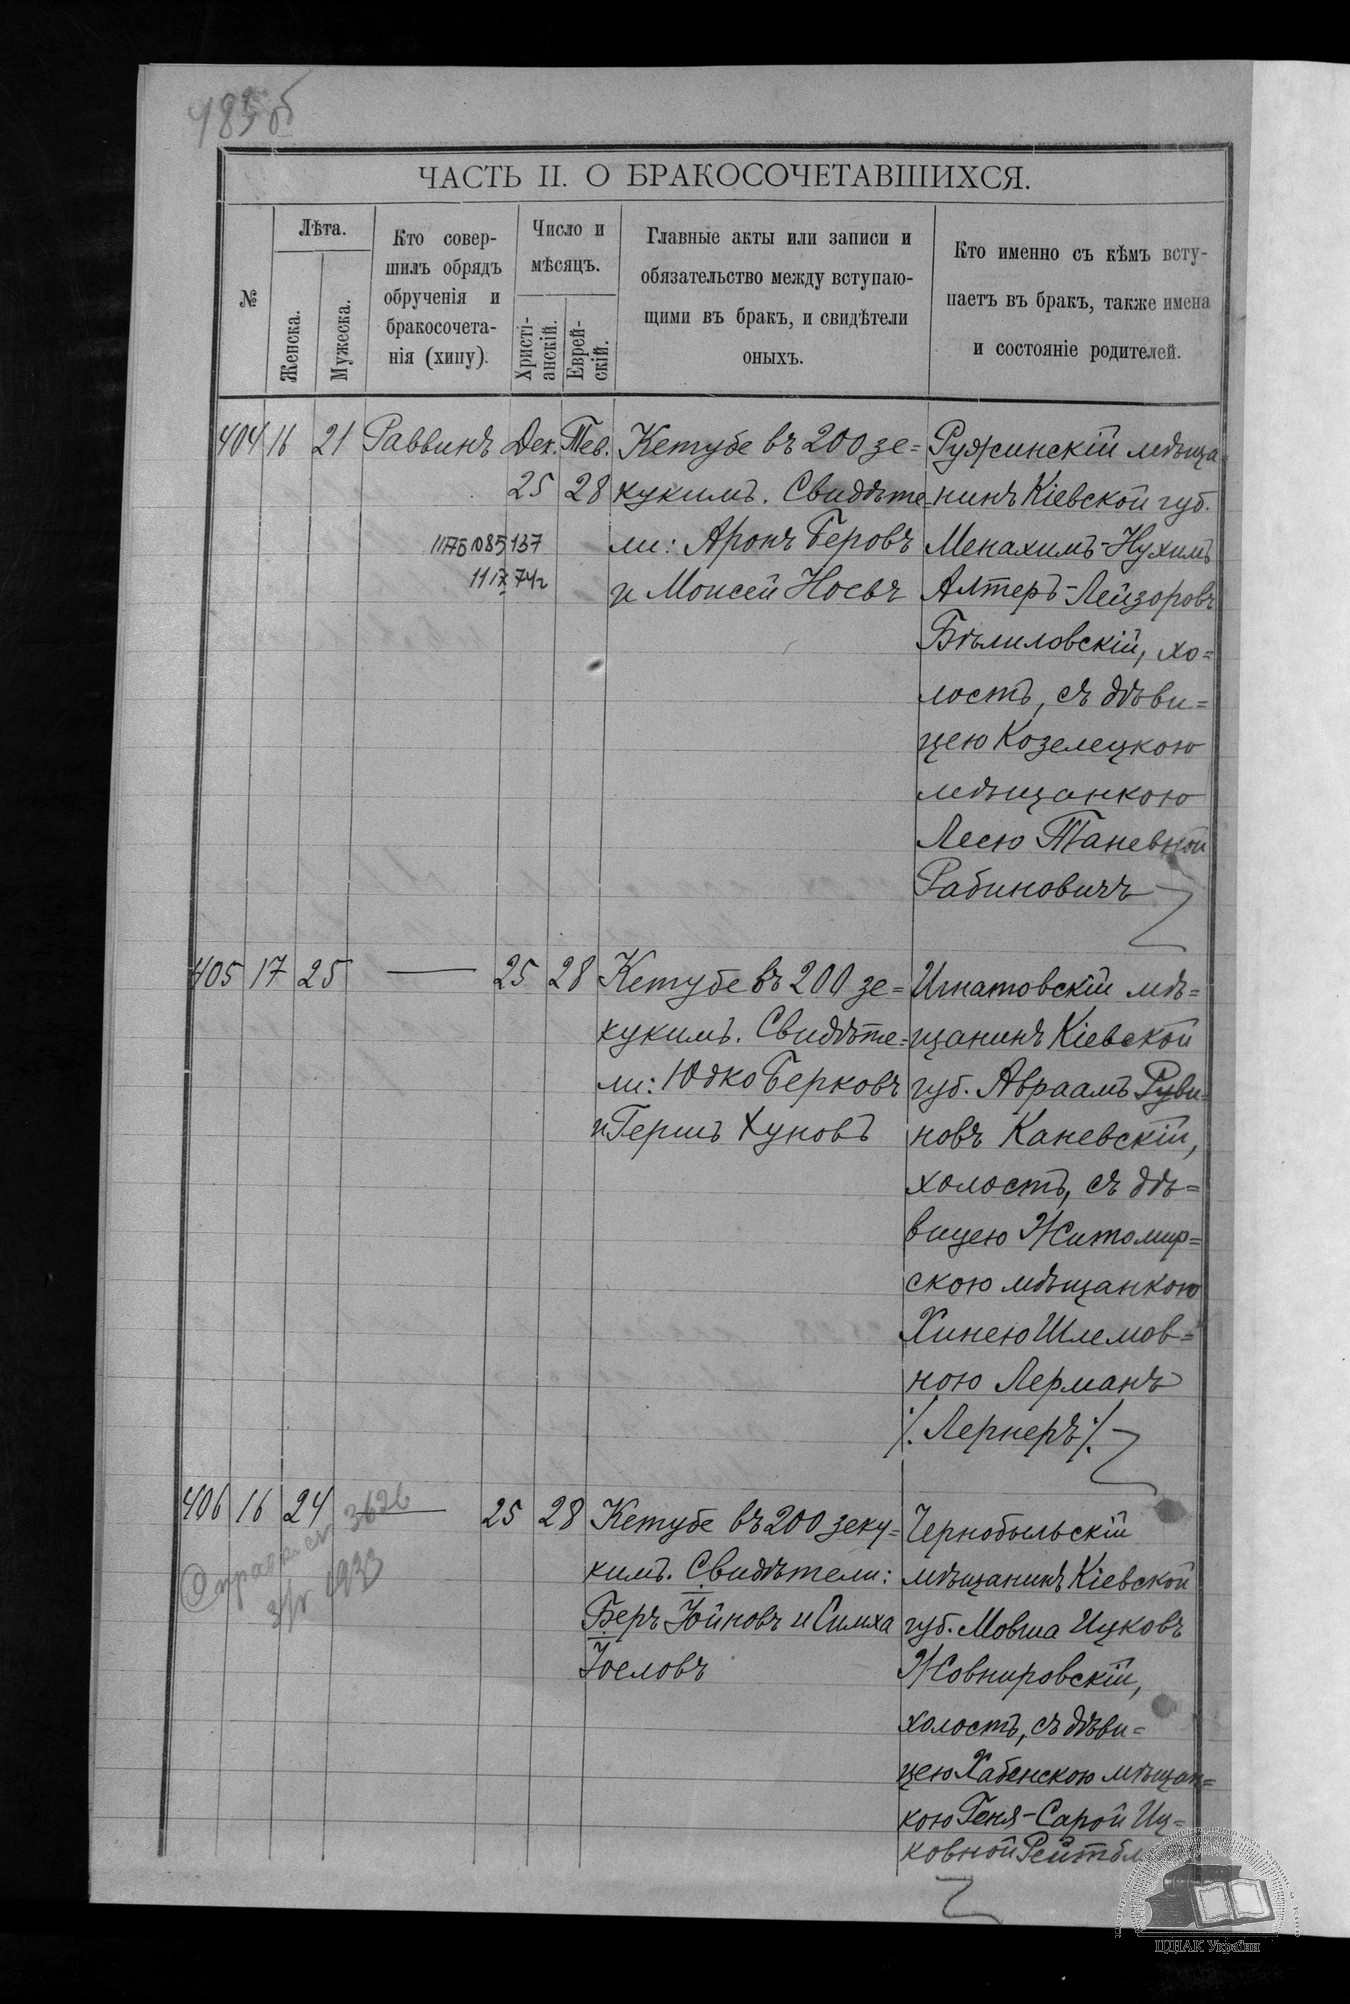 485 б
ЧАСТЬ II. О БРАКОСОЧЕТАВШИХСЯ.
№
Лѣта.
Женска.
Мужеска.
Кто совер-
шилъ обрядъ
обрученія и
бракосочета-
нія (хипу).
Число и
мѣсяцъ.
Христі-
анскій.
Еврей-
скій.
Главные акты или записи и
обязательство между вступаю-
щими въ бракъ, и свидѣтели
оныхъ.
Кто именно съ кѣмъ всту-
паетъ въ бракъ, также имена
и состояніе родителей.
404 16 21 Раввинъ Дек. Тев.
25 28
Кетубе въ 200 зе=
кукимъ. Свидѣте=
ли: Аронъ Беровъ
и Моисей Носвъ
Ружинскій мѣща=
нинъ Кіевской губ.
Менахимъ-Нухимъ
Алтеръ-Лейзоровъ
Бѣлиловскій, хо=
лостъ, съ дѣви=
цею Козелецкою
мѣщанкою
Лесю Таневной
Рабиновичъ
405 17 25 — 25 28
Кетубе въ 200 зе=
кукимъ. Свидѣте=
ли: Юдко Берковъ
и Гершъ Хуновъ
Игнатовскій мѣ=
щанинъ Кіевской
губ. Авраамъ Руви=
новъ Каневскій,
холостъ, съ дѣ=
вицею Житомир=
скою мѣщанкою
Хинею Шлемов=
ною Лерманъ
/. Лернеръ /.
406 16 24 — 25 28
3626
1933
Кетубе въ 200 зеку=
кимъ. Свидѣтели:
Беръ Іойновъ и Симха
Іословъ
Чернобыльскій
мѣщанинъ Кіевской
губ. Мовша Ицковъ
Жовнировскій,
холостъ, съ дѣви=
цею Хабенскою мѣщан=
кою Геня-Сарой Иц=
ковной
ЦДІАК України